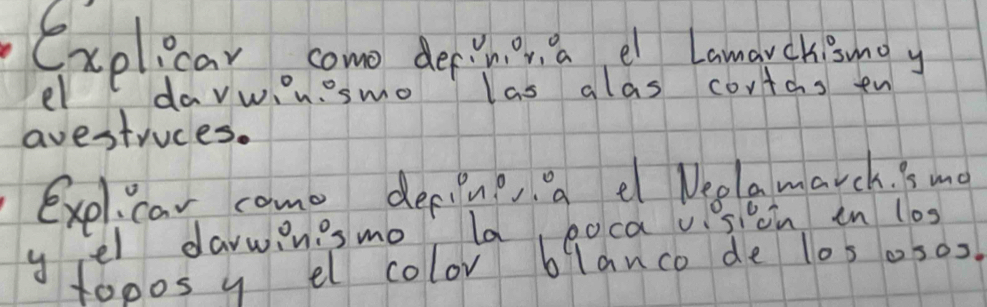 Explicar como definiría el Lamarckismo y
el darwinismo las alas cortas en
avestruces.
Explicar como definiría el Neolamarckismo
y el darwinismo la poca visión en los
topos y el color blanco de los osos.